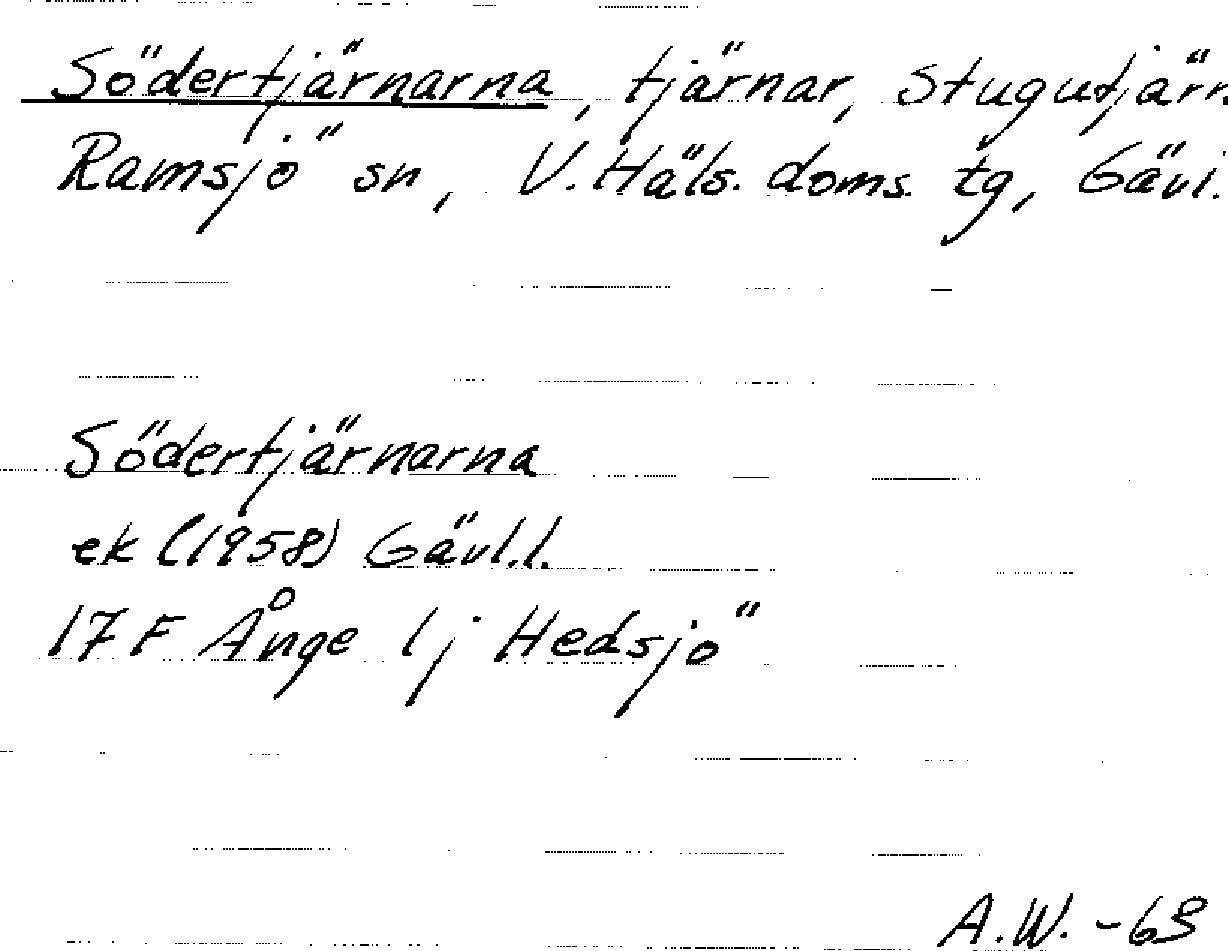 Södertjärnarna, tjärnar, Stugutjärn
Ramsjö sn, V. Häls. doms. tg, Gävl.
Södertjärnarna
ek (1958) Gävl.l.
17 F Ånge 1 j Hedsjö
A.W. -69